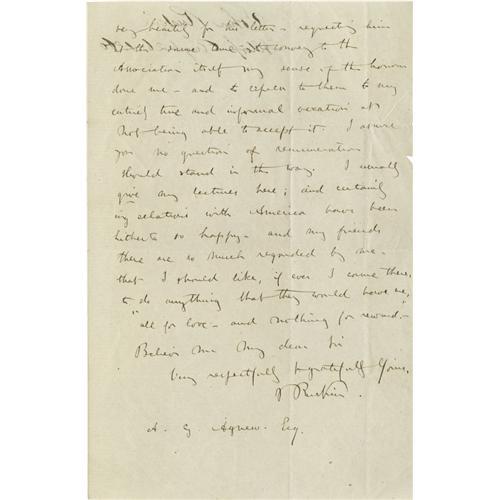 very heartily for his letter - requesting him
at the same time - to convey to the
Association itself my sense of the honour
done me - and to express to them to my
entirely true and informal vexation at
not being able to accept it. I assure
you no question of remuneration
should stand in the way. I usually
give my lectures here; and certainly
my relations with America have been
hitherto so happy - and my friends
there are so much regarded by me -
that I should like, if ever I come there,
to do anything that they would have me,
"all for love - and nothing for reward. -
Believe me My dear Sir
Very respectfully & gratefully Yours,
J Ruskin.
A. G. Agnew. Esq.